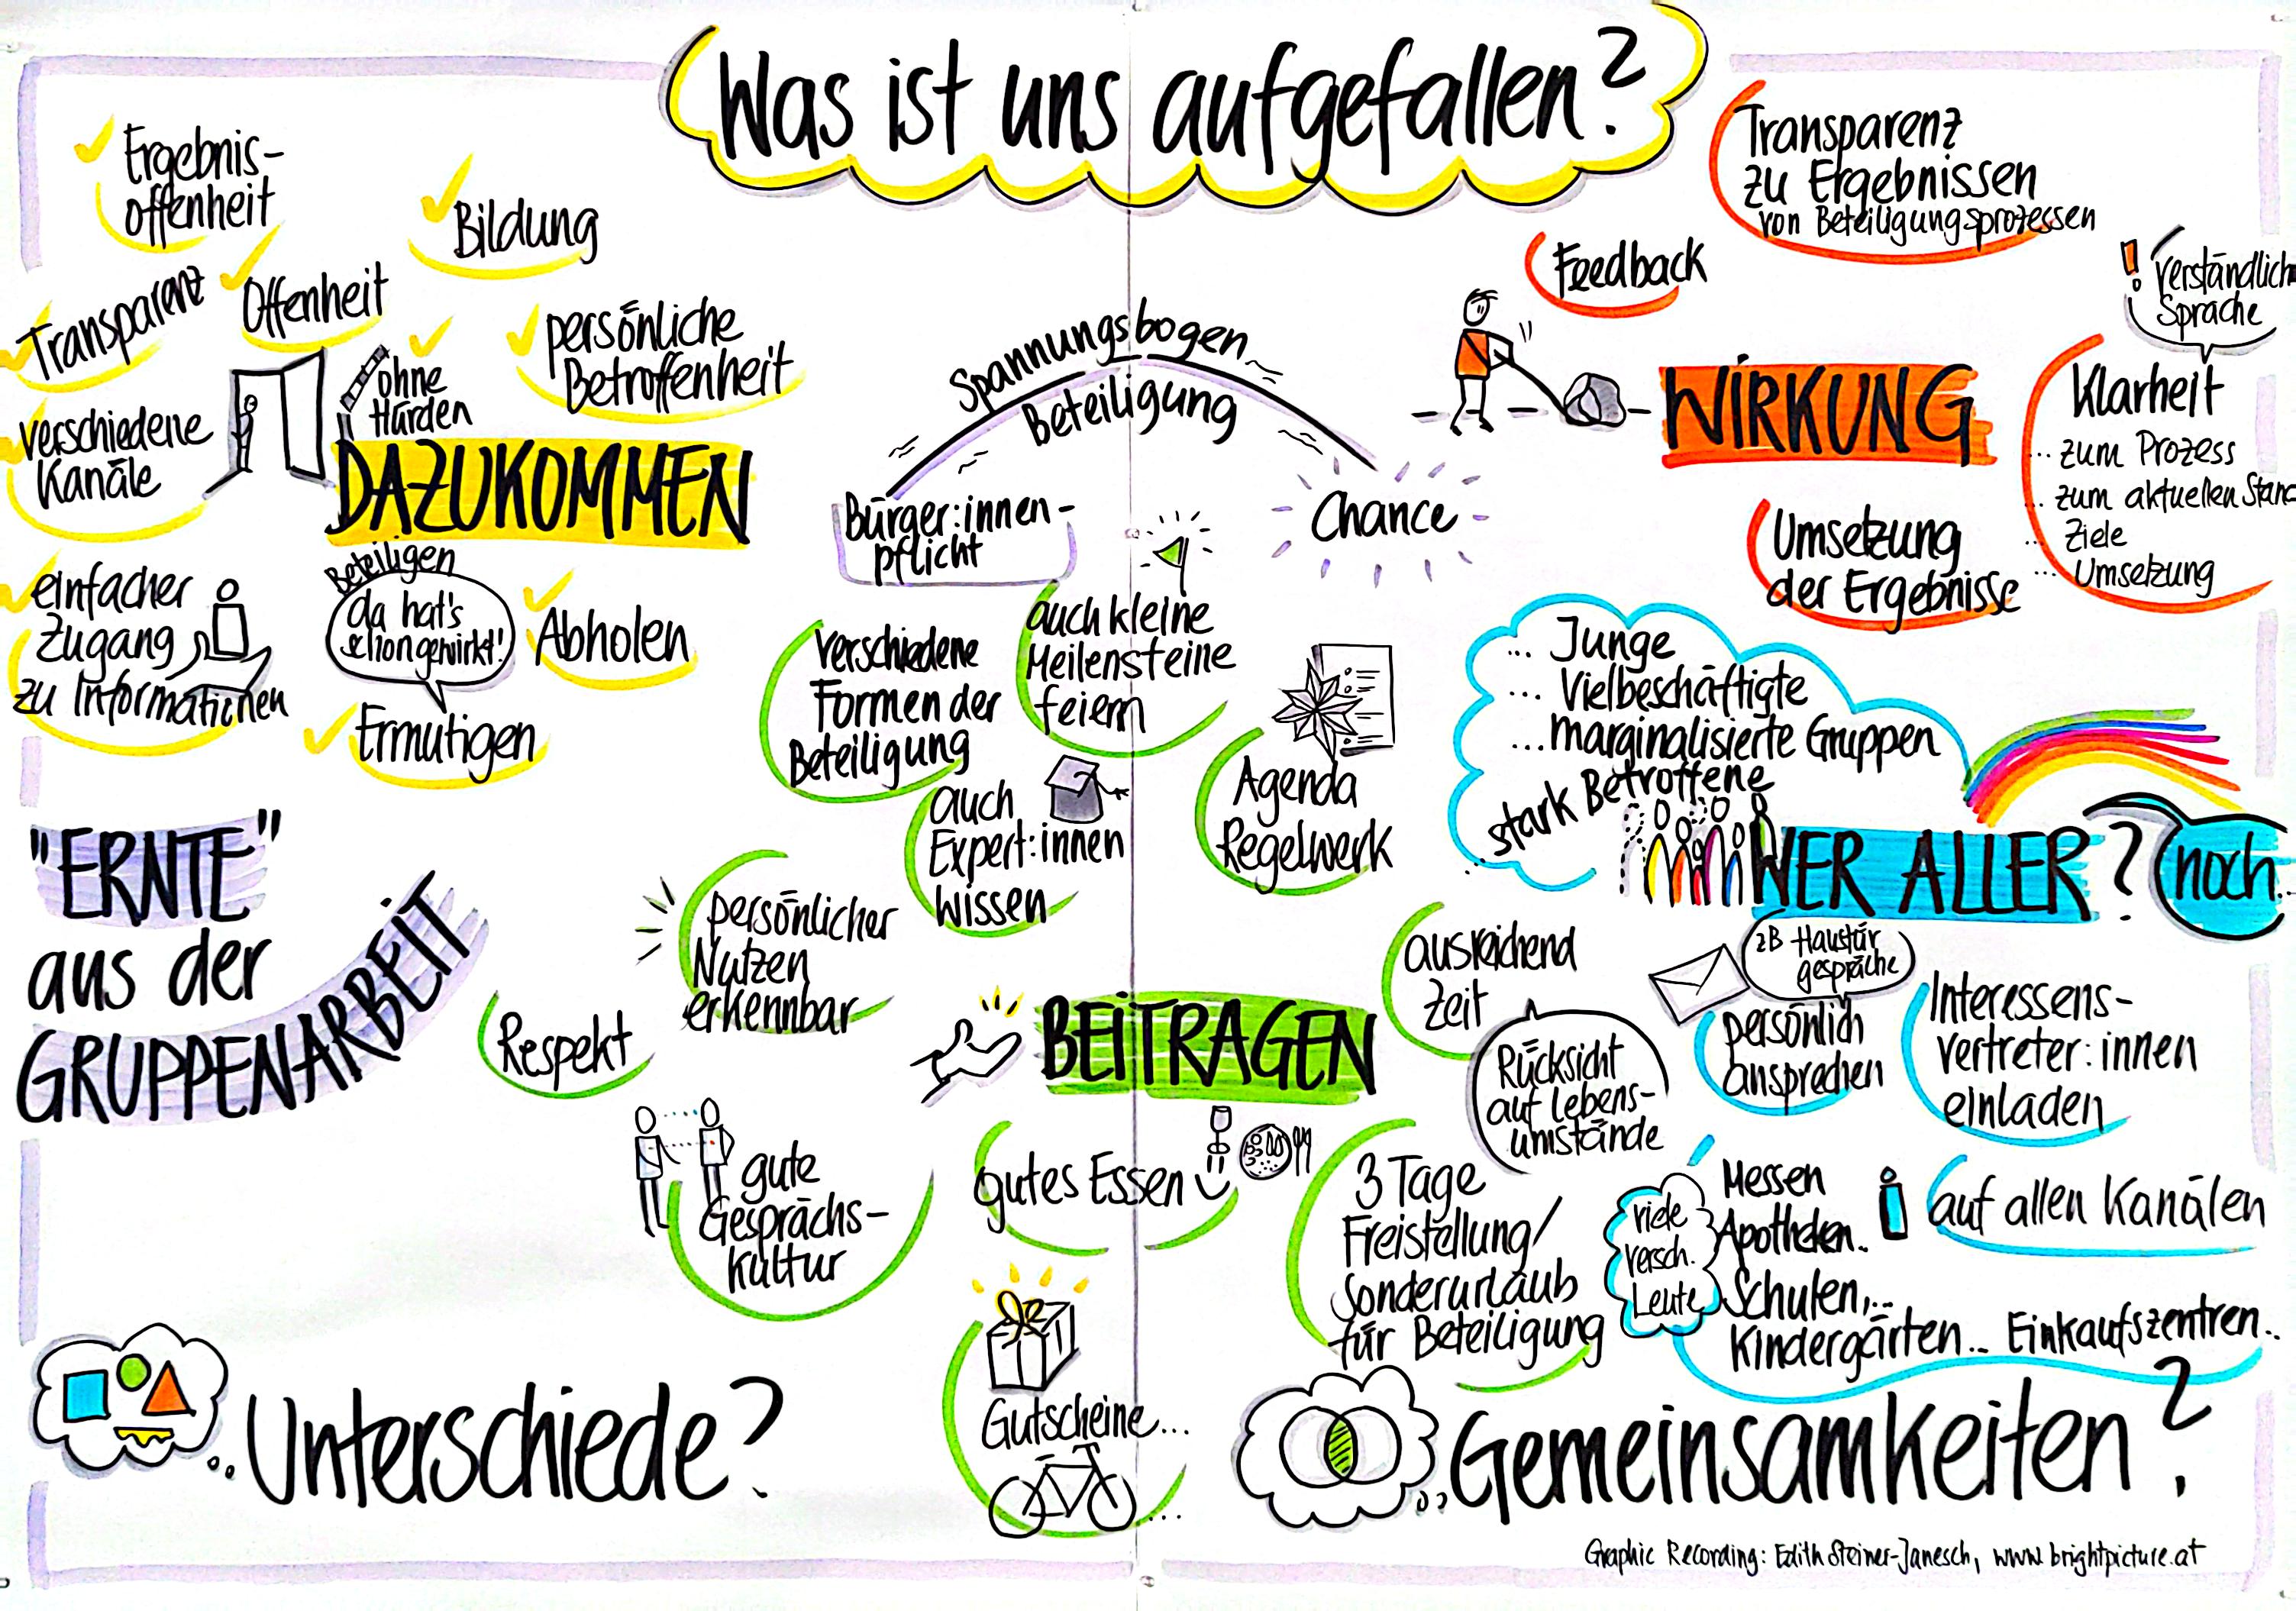 Was ist uns aufgefallen?
Ergebnis-
offenheit
Bildung
Transparenz
Offenheit
ohne
Hürden
persönliche
Betroffenheit
verschiedene
Kanäle
DAZUKOMMEN
einfacher
Zugang
zu Informationen
Beteiligen
da hat's
schon gewirkt!
Abholen
Ermutigen
Spannungsbogen
Beteiligung
Bürger:innen-
pflicht
Chance
Feedback
Transparenz
zu Ergebnissen
von Beteiligungsprozessen
! verständliche
Sprache
WIRKUNG
Klarheit
... zum Prozess
... zum aktuellen Stand
... Ziele
... Umsetzung
Umsetzung
der Ergebnisse
verschiedene
Formen der
Beteiligung
auch kleine
Meilensteine
feiern
auch
Expert:innen
wissen
Agenda
Regelwerk
persönlicher
Nutzen
erkennbar
Respekt
BEITRAGEN
ausreichend
Zeit
Rücksicht
auf Lebens-
umstände
gute
Gesprächs-
kultur
gutes Essen
3 Tage
Freistellung/
Sonderurlaub
für Beteiligung
Gutscheine...
....
... Junge
... Vielbeschäftigte
... marginalisierte Gruppen
... stark Betroffene
WER ALLER? noch..
zB Haustür
gespräche
persönlich
ansprechen
Interessens-
vertreter:innen
einladen
viele
versch.
Leute
Messen
Apotheken..
Schulen,...
Kindergärten... Einkaufszentren..
auf allen Kanälen
"ERNTE"
aus der
GRUPPENARBEIT
Unterschiede?
Gemeinsamkeiten?
Graphic Recording: Edith Steiner-Janesch, www.brightpicture.at